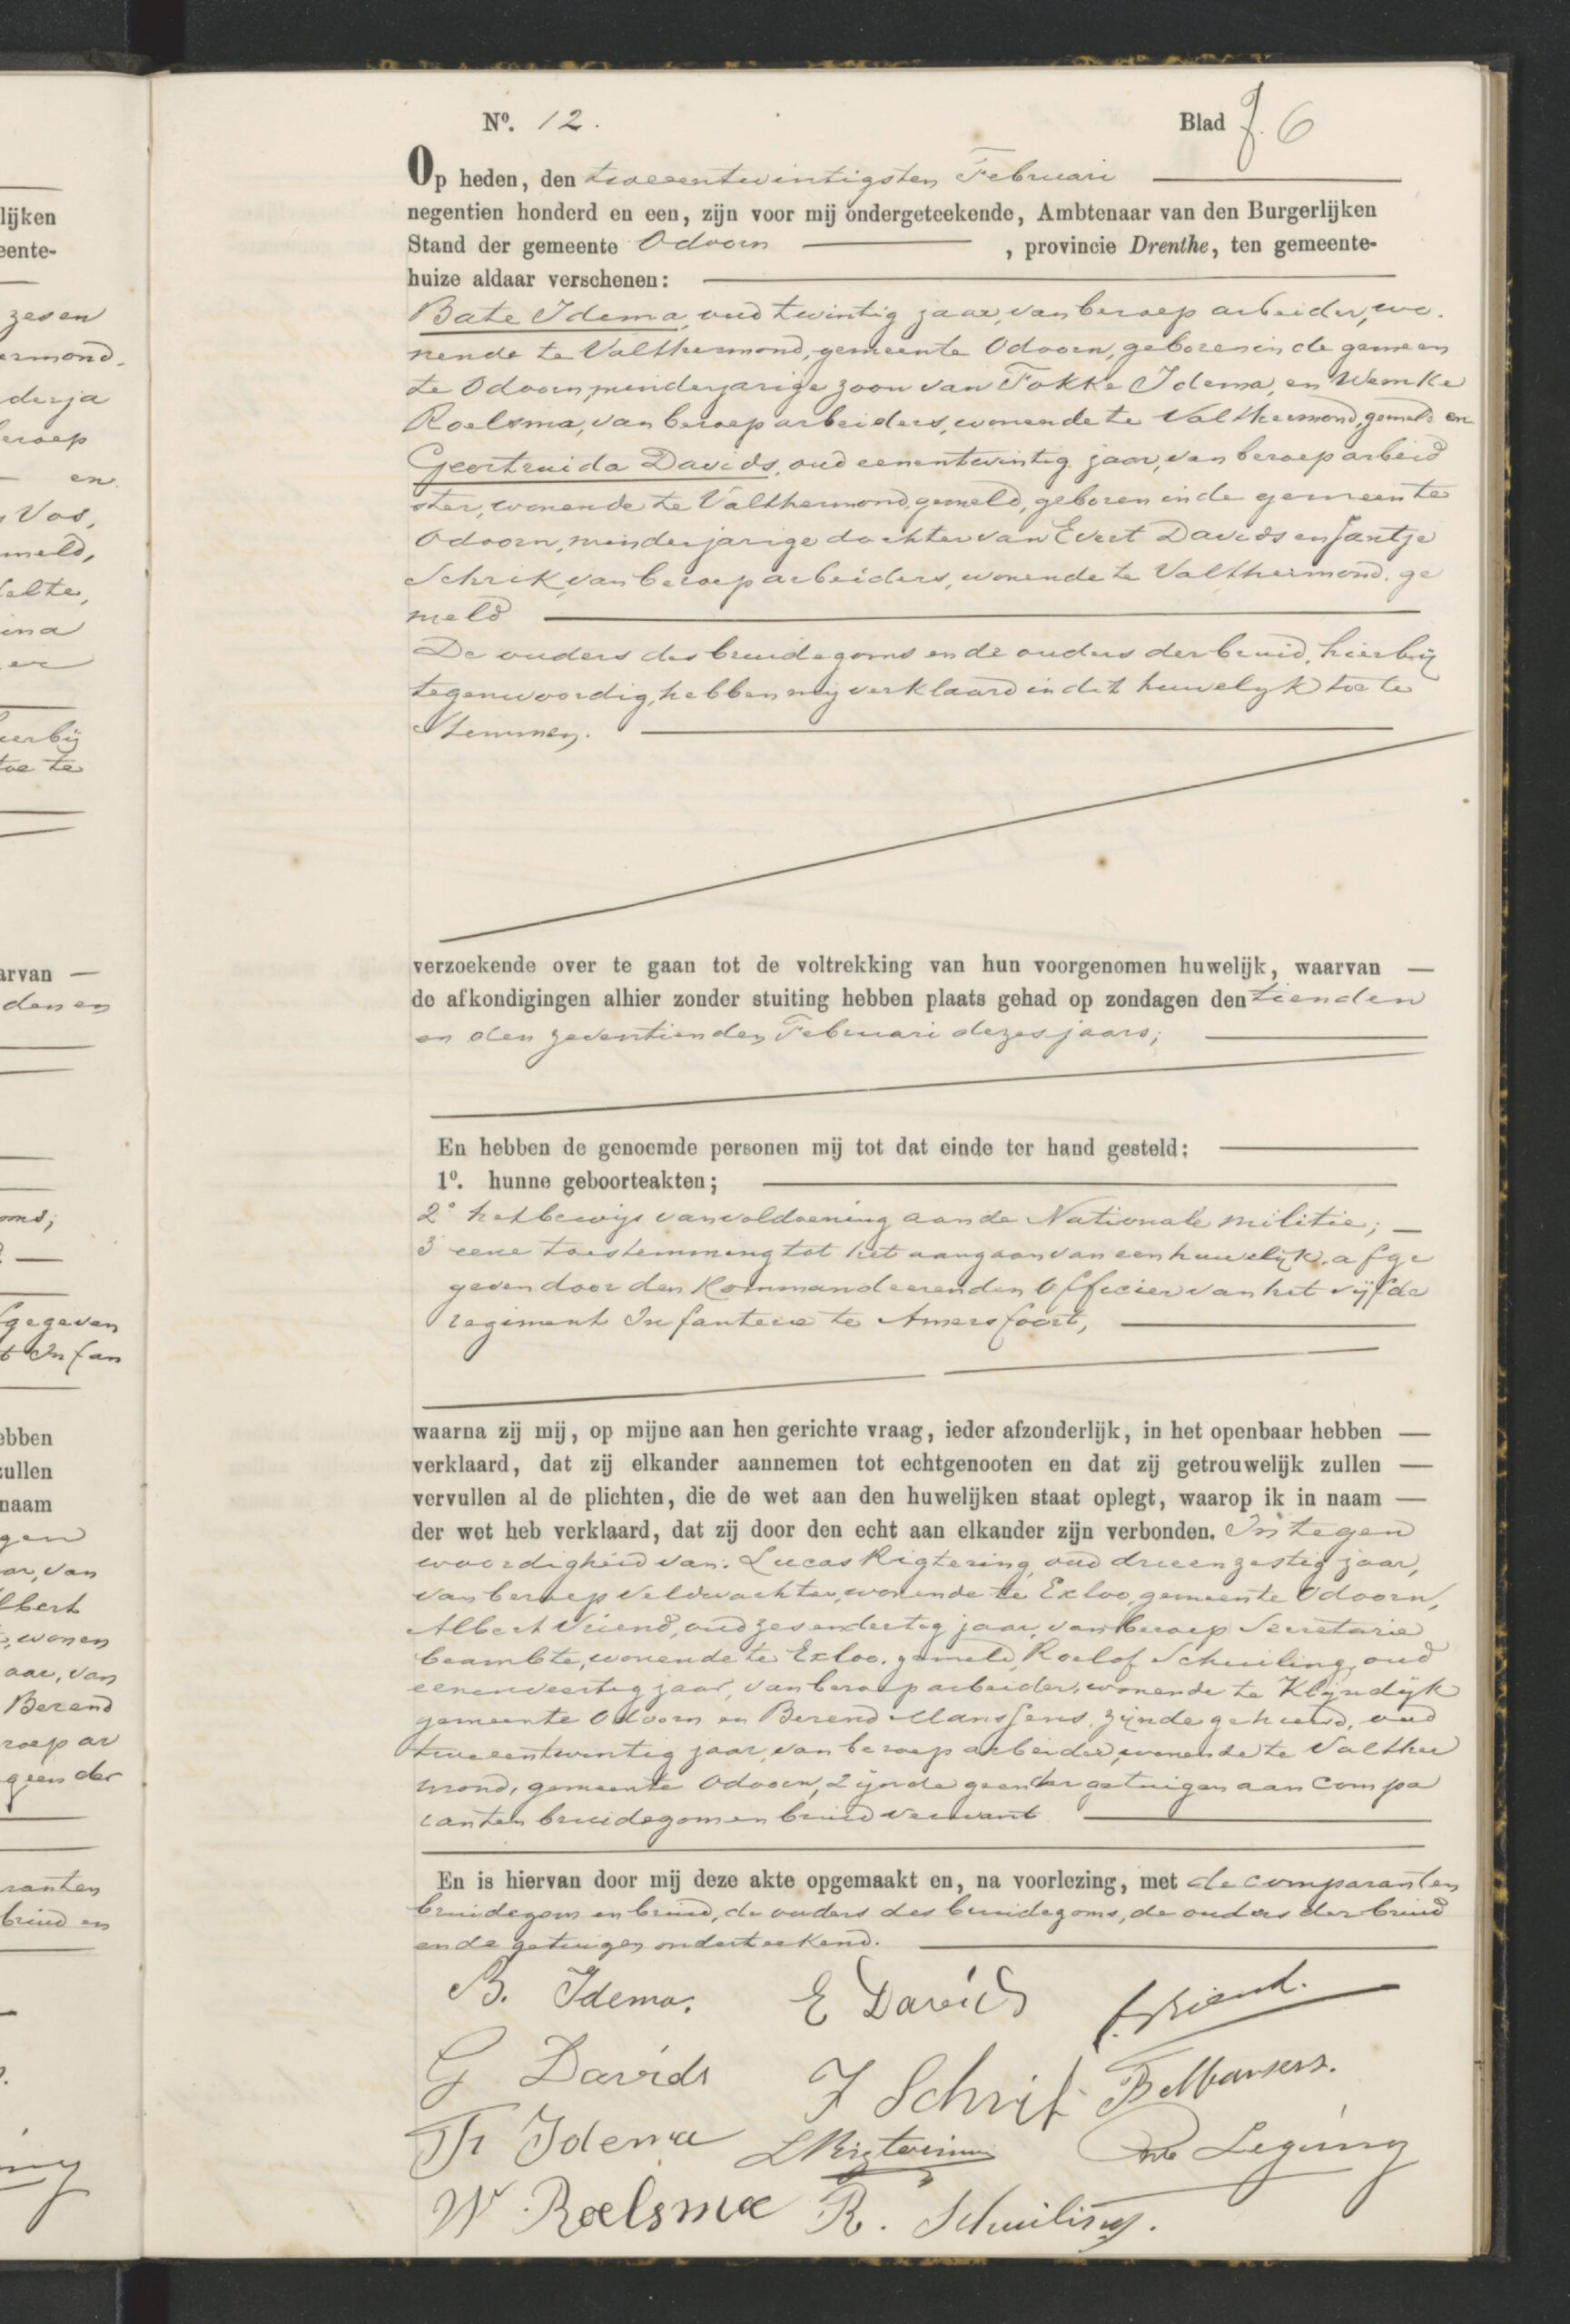 lijken
eente-
zes en
ermond.
derja
eroep
en
Vos,
meld,
elte,
ina
en
ierbij
toe te
arvan —
den en
oms;
fgegeven
t Infan
ebben
zullen
naam
gen
ar, van
lbert
, wonen
aar, van
Berend
roep ar
geen der
ranten
bruid en
Nº. 12.
Blad f. 6
Op heden, den tweeentwintigsten Februari
negentien honderd en een, zijn voor mij ondergeteekende, Ambtenaar van den Burgerlijken
Stand der gemeente Odoorn , provincie Drenthe, ten gemeente-
huize aldaar verschenen:
Bate Idema, oud twintig jaar, van beroep arbeider, wo.
nende te Valthermond, gemeente Odoorn, geboren in de gemeen
te Odoorn, minderjarige zoon van Fokke Idema, en Wemke
Roelsma, van beroep arbeiders, wonende te Valthermond, gemeld en
Geertruida Davids, oud eenentwintig jaar, van beroep arbeid
ster, wonende te Valthermond, gemeld, geboren in de gemeente
Odoorn, minderjarige dochter van Evert Davids en Jantje
Schrik, van beroep arbeiders, wonende te Valthermond, ge
meld
De ouders des bruidegoms en de ouders der bruid, hierbij
tegenwoordig, hebben mij verklaard in dit huwelijk toe te
stemmen.
verzoekende over te gaan tot de voltrekking van hun voorgenomen huwelijk, waarvan —
de afkondigingen alhier zonder stuiting hebben plaats gehad op zondagen den tienden
en den zeventienden Februari dezes jaars;
En hebben de genoemde personen mij tot dat einde ter hand gesteld:
1º. hunne geboorteakten;
2º het bewijs van voldoening aan de Nationale militie; —
3 eene toestemming tot het aangaan van een huwelijk, afge
geven door den Kommandeerenden Officier van het vijfde
regiment Infanterie te Amersfoort,
waarna zij mij, op mijne aan hen gerichte vraag, ieder afzonderlijk, in het openbaar hebben —
verklaard, dat zij elkander aannemen tot echtgenooten en dat zij getrouwelijk zullen —
vervullen al de plichten, die de wet aan den huwelijken staat oplegt, waarop ik in naam —
der wet heb verklaard, dat zij door den echt aan elkander zijn verbonden. In tegen
woordigheid van: Lucas Rigtering, oud drieenzestig jaar,
van beroep veldwachter, wonende te Exloo, gemeente Odoorn,
Albert Vriend, oud zesendertig jaar, van beroep Secretarie
beambte, wonende te Exloo, gemeld, Roelof Schuiling, oud
eenenveertig jaar, van beroep arbeider, wonende te Klijndijk
gemeente Odoorn en Berend Manssens, zijnde gehuwd, oud
tweeentwintig jaar, van beroep arbeider, wonende te Valther
mond, gemeente Odoorn, zijnde geen der getuigen aan compa
ranten bruidegom en bruid verwant
En is hiervan door mij deze akte opgemaakt en, na voorlezing, met de comparanten
bruidegom en bruid, de ouders des bruidegoms, de ouders der bruid
en de getuigen onderteekend.
B. Idema. E Davids A. Vriend.
G Davids J Schrik B Manssens.
Idema L Rigtering Legüng
W Roelsma R. Schuiling.